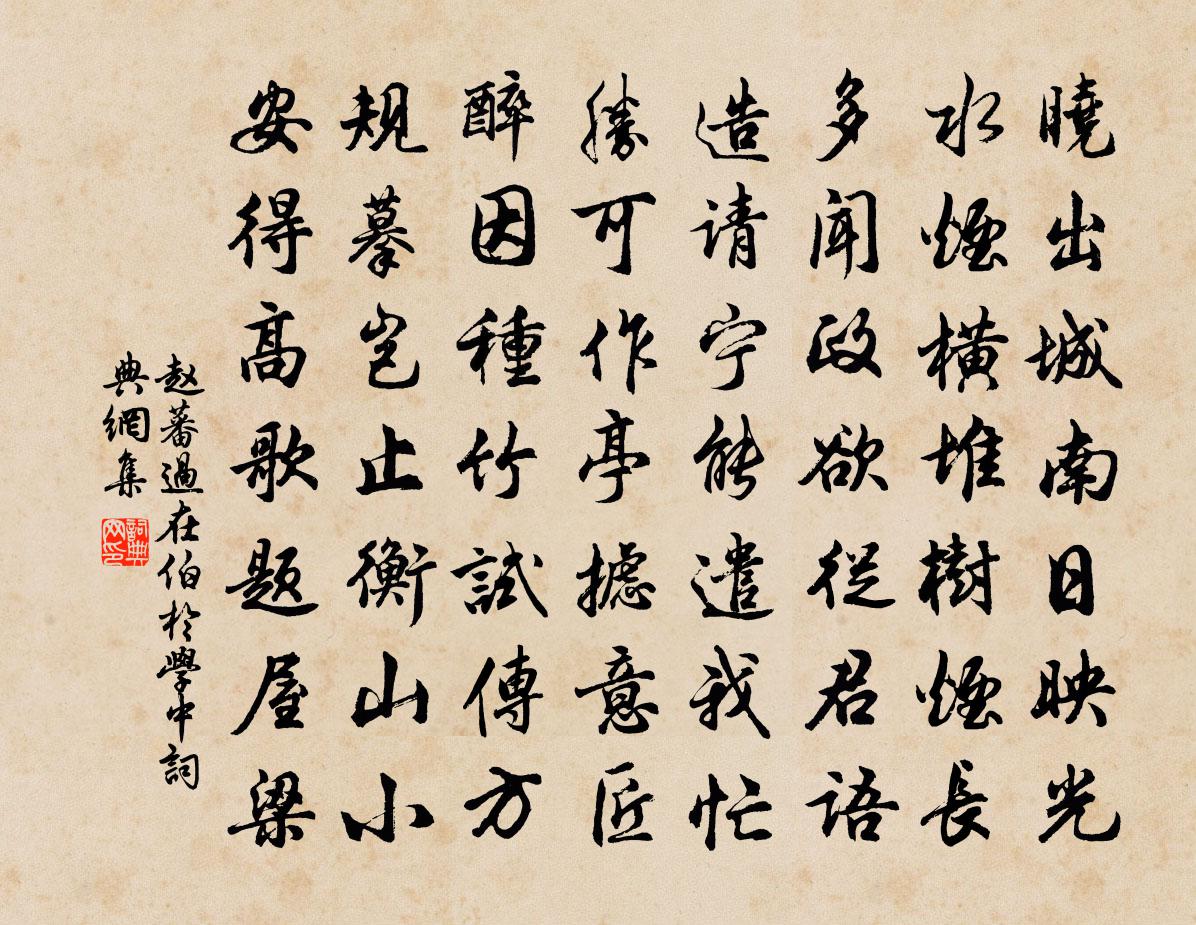 曉出城南日映光
水煙橫堆樹煙長
多聞政欲從君語
造请宁能遣我忙
勝可作亭攄意匠
醉因種竹試傳方
規摹岂止衡山小
安得高歌题屋梁
赵蕃過在伯於學中詞
典網集
詞典
网印